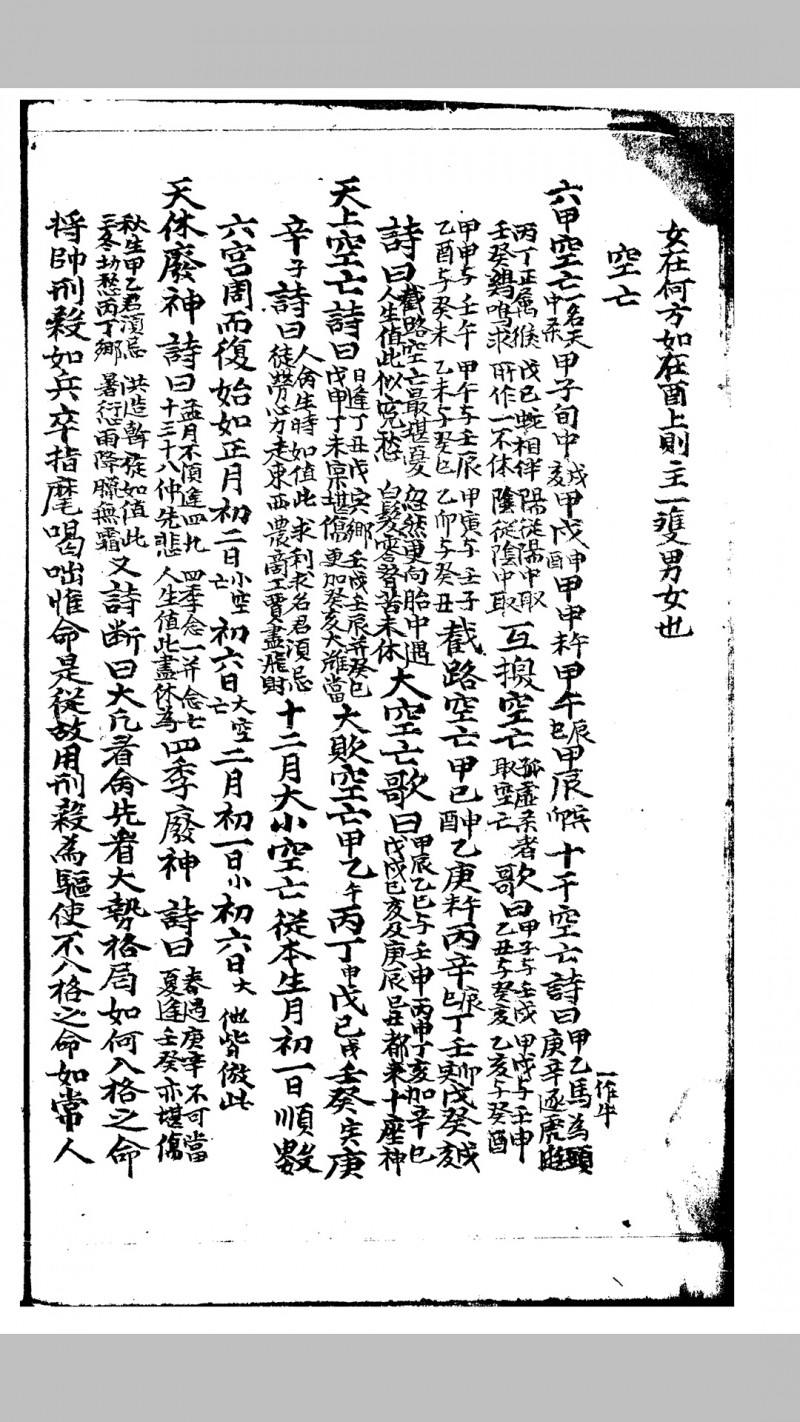 女在何方如在酉上則主一雙男女也
空亡
六甲空亡一名天中煞甲子旬中戌亥甲戌申酉甲申午未甲午辰巳甲辰寅卯十干空亡詩曰甲乙馬為頭一作牛庚辛逐虎遊
丙丁正属猴戊己蛇相伴陽從陽中取壬癸鷄鳴求所作一不休陰從陰中取互換空亡孤虛煞者取空亡歌曰甲子与壬戌甲戌与壬申乙丑与癸亥乙亥与癸酉
甲申与壬午甲午与壬辰甲寅与壬子乙酉与癸未乙未与癸巳乙卯与癸丑截路空亡甲己申酉乙庚午未丙辛辰巳丁壬寅卯戊癸戌亥
詩曰截路空亡最堪憂忽然更向胎中遇人生值此似寃愁白髪零聲苦未休大空亡歌曰甲辰乙巳与壬申丙申丁亥加辛巳戊戌己亥及庚辰己丑都来十座神
天上空亡詩曰日逢丁丑戊寅鄉壬戌壬辰并癸巳戊申丁未禀堪傷更加癸亥大難當大敗空亡甲乙午丙丁申戊己戌壬癸寅庚
辛子詩曰人命生時如值此求利求名君須忌徒勞心力走東西農商工賈盡乖財十二月大小空亡從本生月初一日順數
六宮周而復始如正月初二日小空亡初六日大空亡二月初一日小初六日大他皆倣此
天休廢神詩曰孟月不須逢四九四季念一并念七十三十八仲先悲人生值此盡休為四季廢神詩曰春遇庚辛不可當夏逢壬癸亦堪傷
秋生甲乙君須忌洪造暫從如值此三冬切愁丙丁鄉暑衍雨降臘無霜又詩断曰大凡看命先看大勢格局如何入格之命
将帥刑殺如兵卒指麾喝咄惟命是從故用刑殺為驅使不入格之命如常人